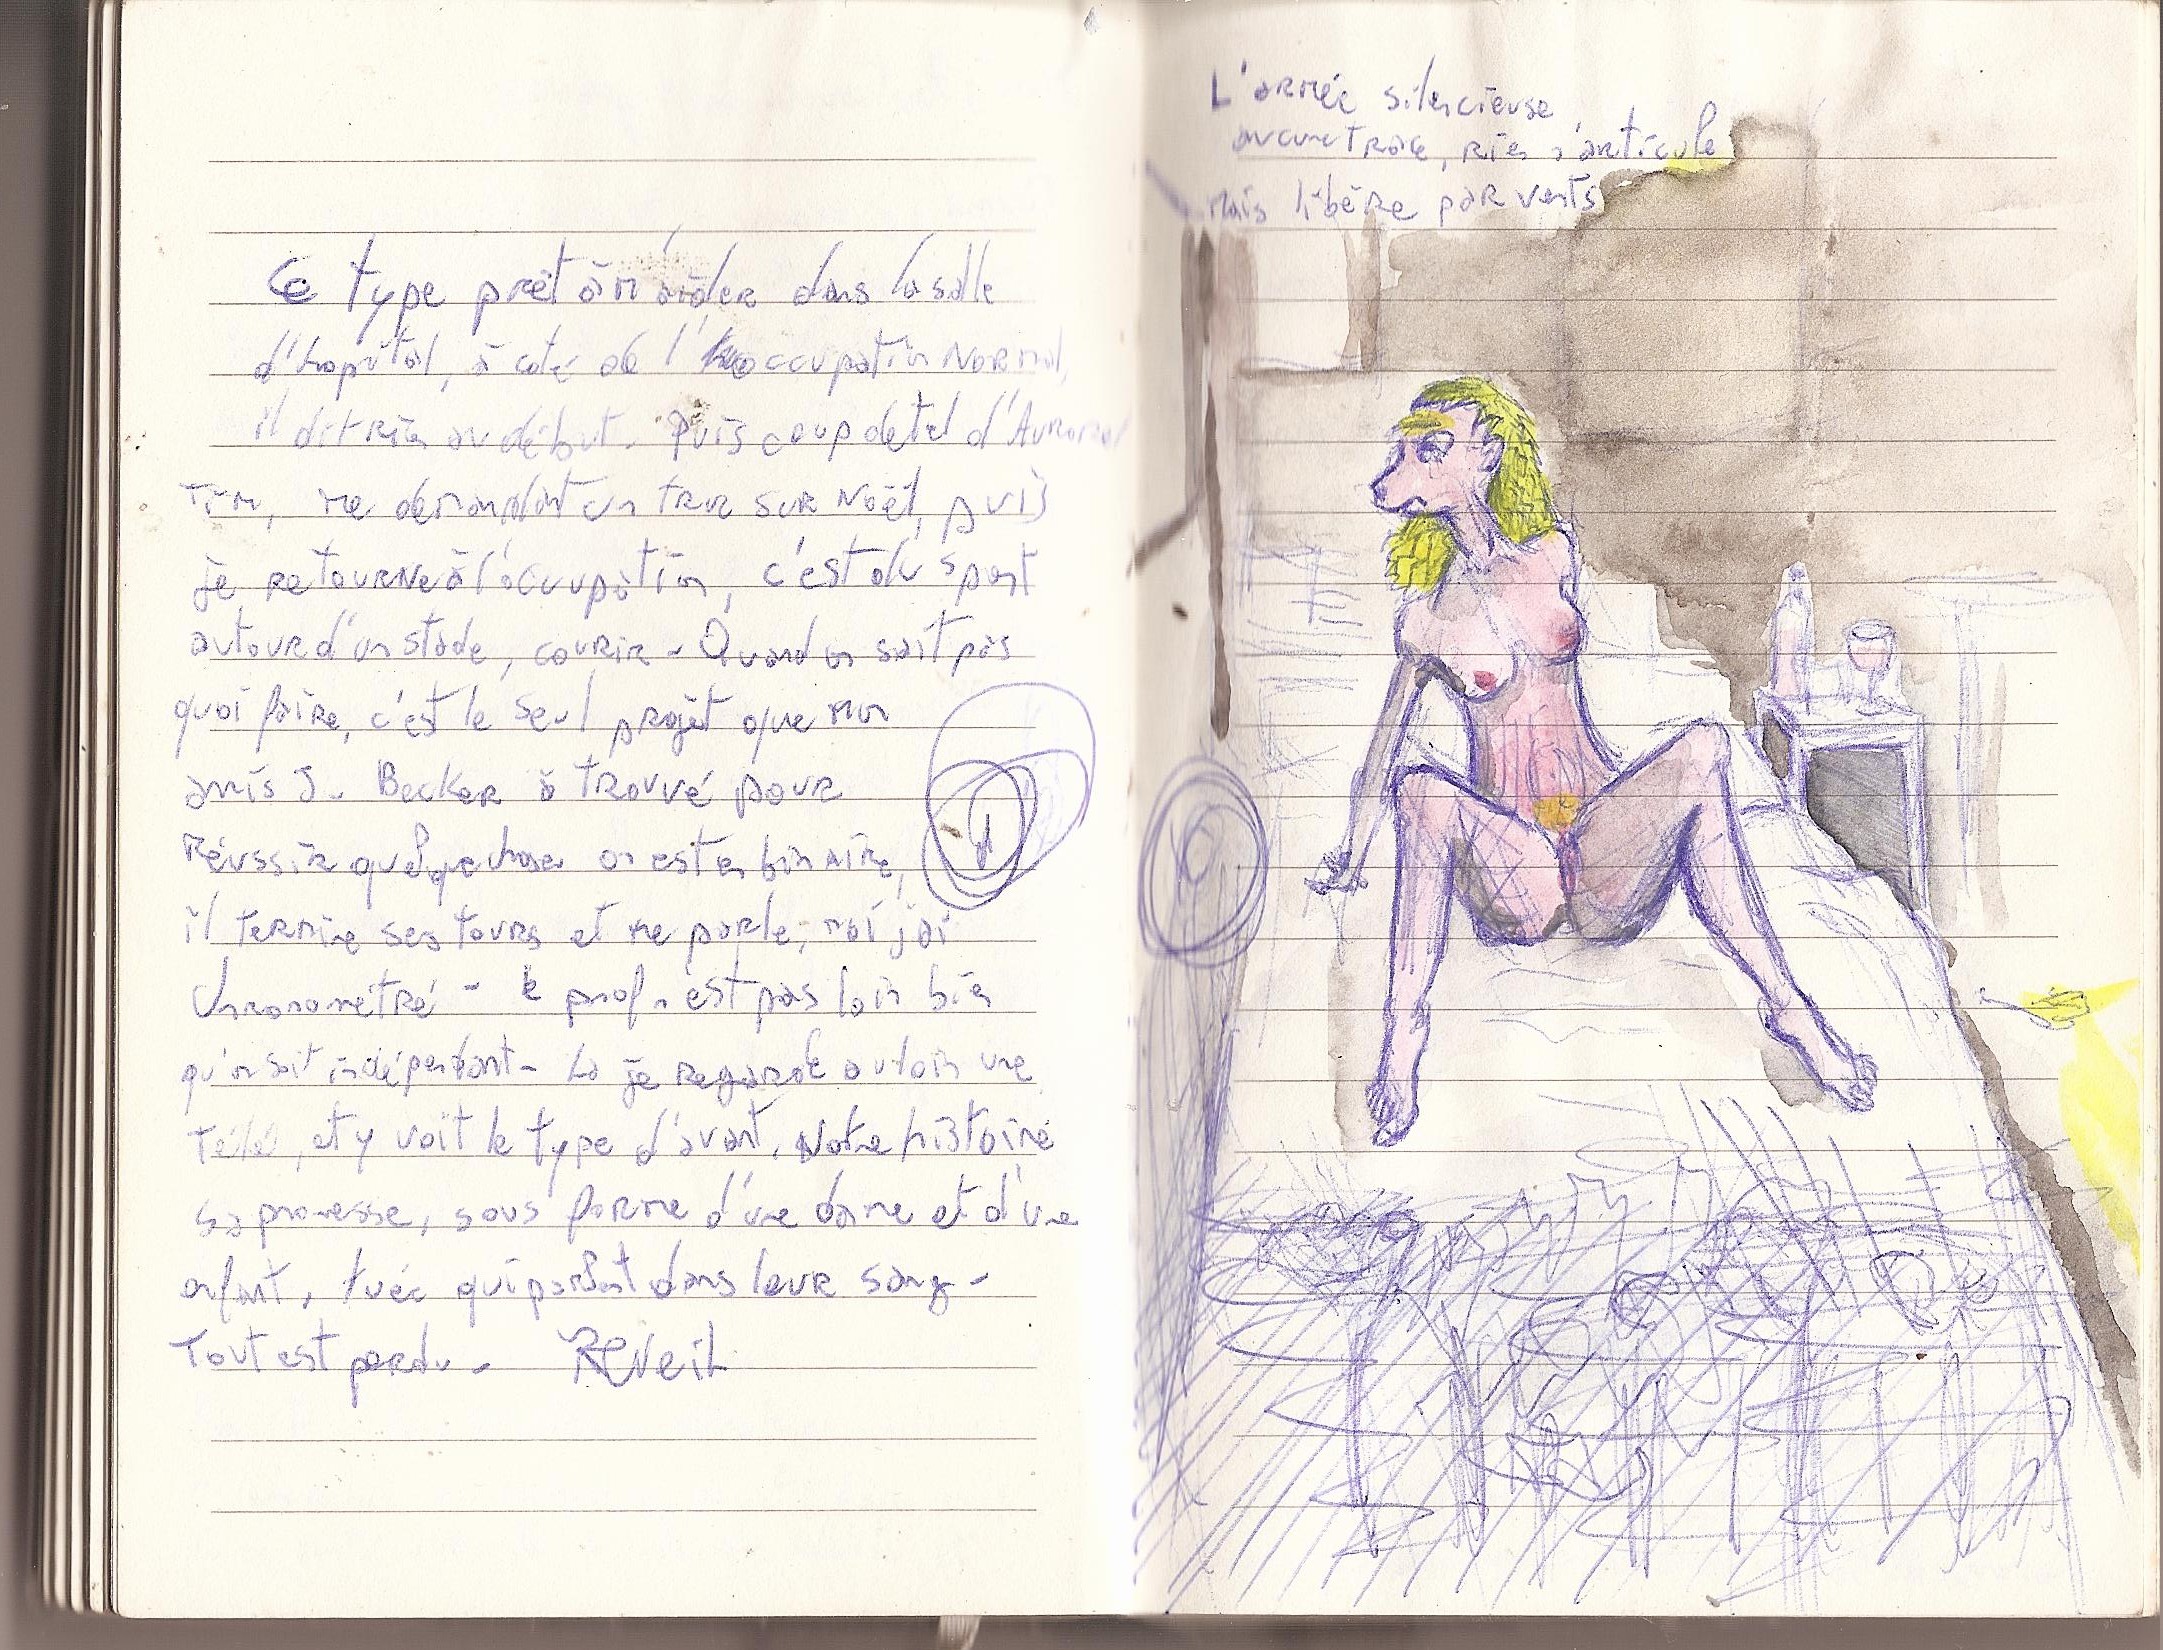 Ce type prêt à m'aider dans la salle
d'hopital, à coté de l'occupation Normal,
il dit rien au début - Puis coup de tel d'
Tim, me demandant un truc sur Noël, puis
je retourne à l'occupation, c'est du sport
autour d'un stade, courir - Quand on sait pas
quoi faire, c'est le seul projet que mon
amis J. Becker à trouvé pour
Réussir quelque chose on est en binaire,
il termine ses tours et me parle, moi j'ai
chronométré - le prof n'est pas loin bien
qu'on soit indépendant - La je regarde au loin une
Télé, et y voit le type d'avant. Notre histoire
sa promesse, sous forme d'une dame et d'une
enfant, tuéé qui pardent dans leur sang -
Tout est perdu - REVeil
L'armée silencieuse,
aucune trace, rien n'articule
mais libère par vents